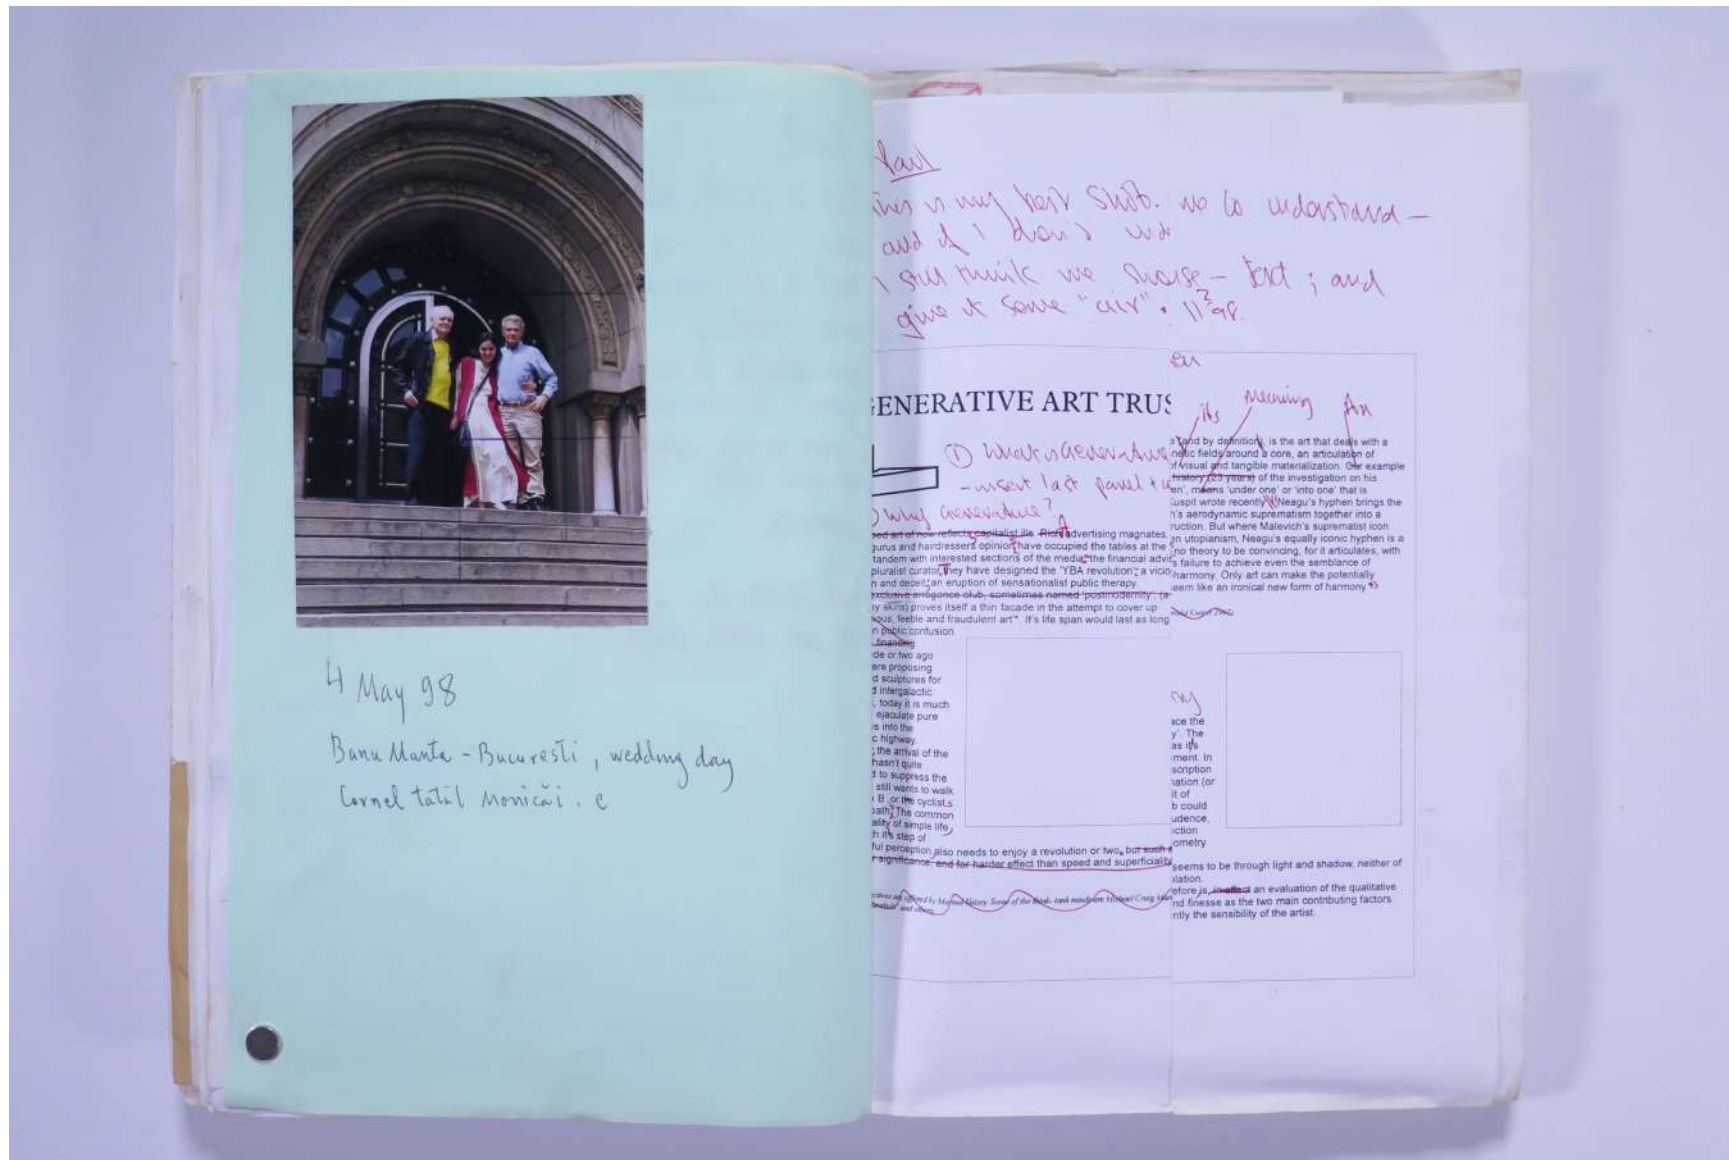 4 May 98
Banu Manta - Bucuresti, wedding day
Cornel tatăl Monicăi. c
Paul
this is my best shot. me to understand -
and if I don't und
I still think we shose - text ; and
give it some "air". 11 2 98.
ENERATIVE ART TRUS
① What is Generative
- insert last panel +
) why Generative?
sed art of now reflects capitalist ills. Rich advertising magnates,
gurus and hairdressers opinion have occupied the tables at the
tandem with interested sections of the media, the financial advi
pluralist curator, they have designed the 'YBA revolution', a vicio
n and deceit, an eruption of sensationalist public therapy.
exclusive arrogance club, sometimes named 'postmodernity', (a
y skins) proves itself a thin facade in the attempt to cover up
ous, feeble and fraudulent art" It's life span would last as long
n public confusion
financing
de or two ago
ere proposing
d sculptures for
d intergalactic
, today it is much
ejaculate pure
es into the
c highway.
, the arrival of the
hasn't quite
d to suppress the
still wants to walk
B, or the cyclists
path. The common
ality of simple life,
h it's step of
ful perception also needs to enjoy a revolution or two, but such
r significance, and for harder effect than speed and superficiality
offered by Some of the think tank minds are Michael Craig
and others
its
Meaning
An
e (and by definition), is the art that deals with a
netic fields around a core, an articulation of
f visual and tangible materialization. Our example
history (23 years) of the investigation on his
en', means 'under one' or 'into one' that is
uspit wrote recently "Neagu's hyphen brings the
's aerodynamic suprematism together into a
ruction. But where Malevich's suprematist icon
an utopianism, Neagu's equally iconic hyphen is a
no theory to be convincing, for it articulates, with
s failure to achieve even the semblance of
harmony. Only art can make the potentially
eem like an ironical new form of harmony."
ny
ace the
y'. The
as it's
ment. In
scription
nation (or
it of
b could
udence,
ction
ometry
seems to be through light and shadow, neither of
olation.
efore is, in effect an evaluation of the qualitative
nd finesse as the two main contributing factors.
ntly the sensibility of the artist.